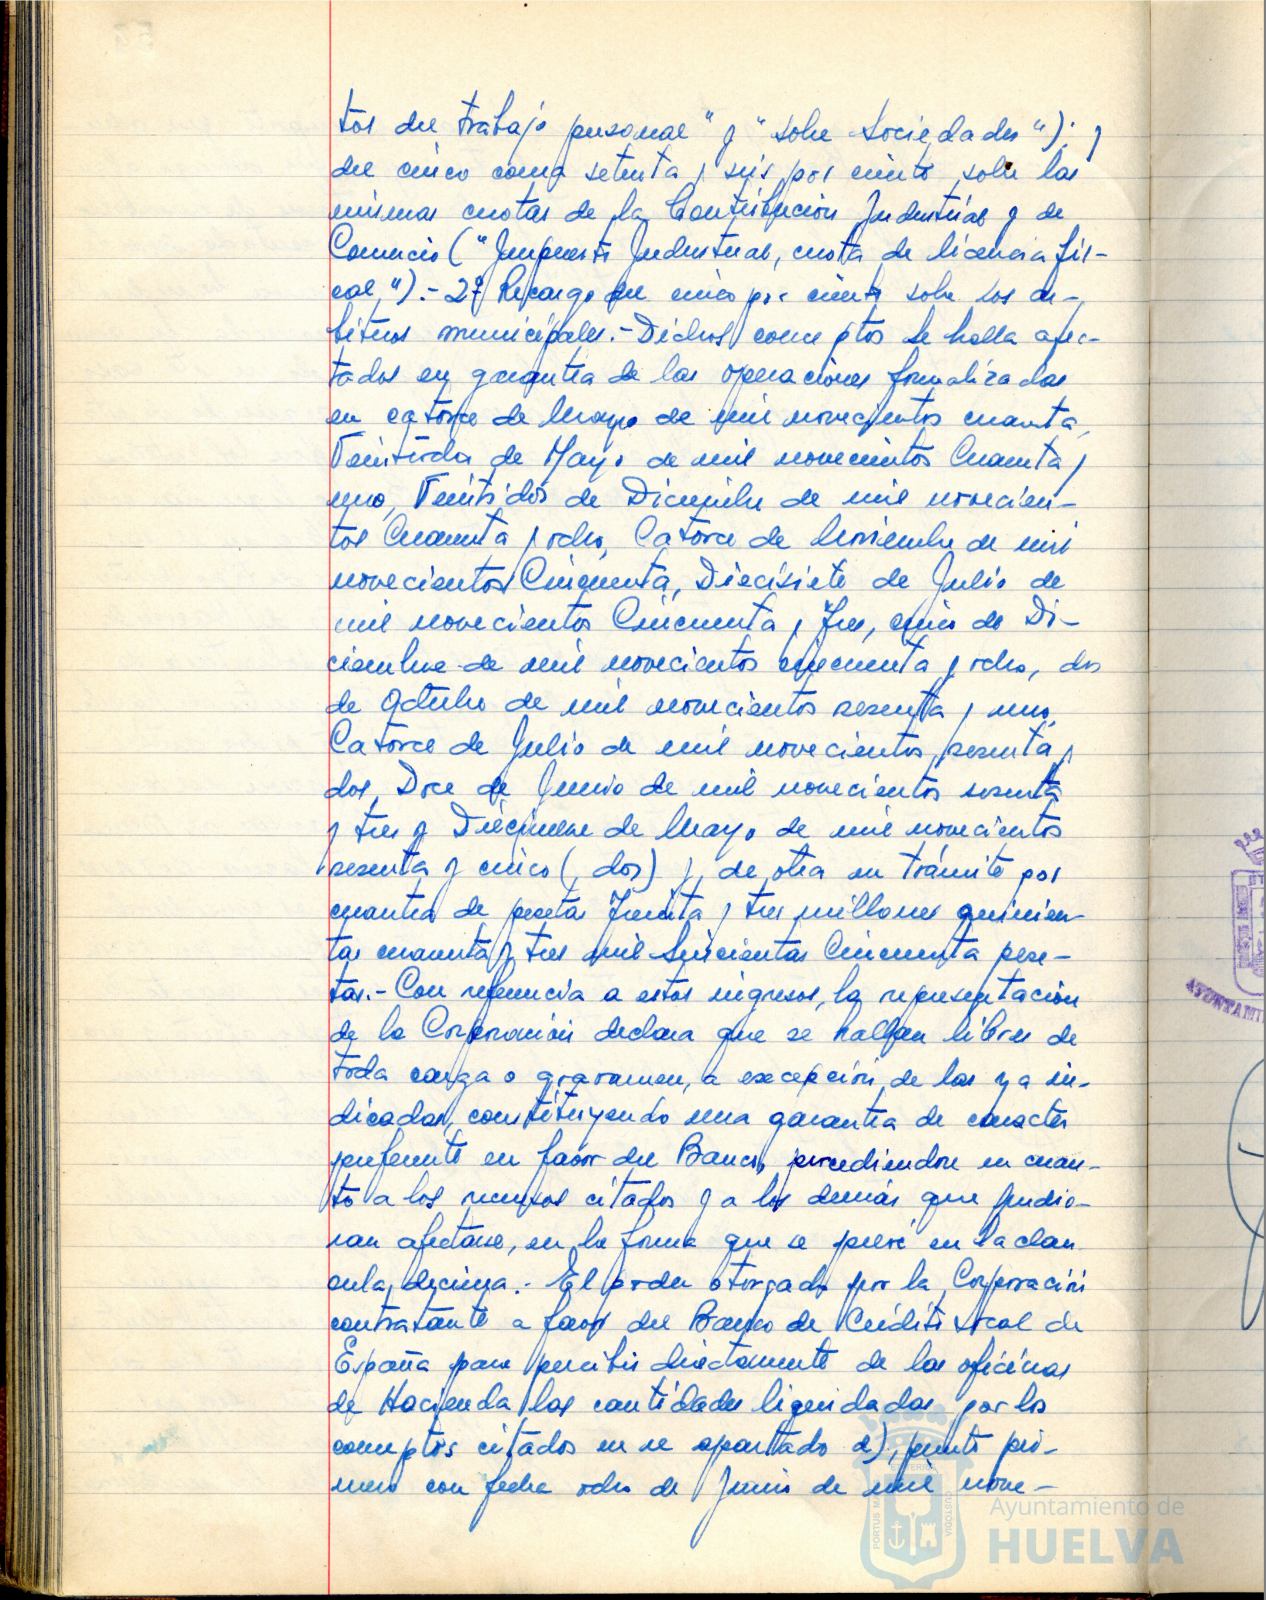 tos del trabajo personal" y "sobre Sociedades"); y
del cinco coma setenta y seis por ciento sobre las
mismas cuotas de la Contribución Industrial y de
Comercio ("Impuesto Industrial, cuota de licencia fis-
cal").- 2º Recargo del cinco por ciento sobre los ar-
bitrios municipales.- Dichos conceptos se halla afec-
tados en garantía de las operaciones formalizadas
en catorce de Mayo de mil novecientos cuarenta,
Veintidos de Mayo de mil novecientos Cuarenta y
uno, Veintidós de Diciembre de mil novecien-
tos Cuarenta y ocho, Catorce de Noviembre de mil
novecientos Cincuenta, Diecisiete de Julio de
mil novecientos Cincuenta y Tres, cinco de Di-
ciembre de mil novecientos cincuenta y ocho, dos
de Octubre de mil novecientos sesenta y uno,
Catorce de Julio de mil novecientos sesenta y
dos, Doce de Junio de mil novecientos sesenta
y tres y Diecinueve de Mayo de mil novecientos
sesenta y cinco (dos) y de otra en trámite por
cuantía de pesetas Treinta y tres millones quinien-
tas cuarenta y tres mil Seiscientas Cincuenta pese-
tas.- Con referencia a estos ingresos, la representación
de la Corporación declara que se hallan libres de
toda carga o gravamen, a excepción de las ya in-
dicadas, constituyendo una garantía de caracter
preferente en favor del Banco, procediendose en cuan-
to a los recursos citados y a los demás que pudie-
ran afectarse, en la forma que se prevé en la clau
sula decima.- El poder otorgado por la Corporación
contratante a favor del Banco de Crédito Local de
España para percibir directamente de las oficinas
de Hacienda las cantidades liquidadas por los
conceptos citados en el apartado a), punto pri-
mero con fecha ocho de Junio de mil nove-
AYUNTAMI
Ayuntamiento de
HUELVA